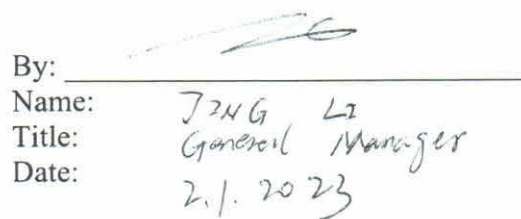 By:
Name: JING LI
Title: General Manager
Date: 2.1.2023